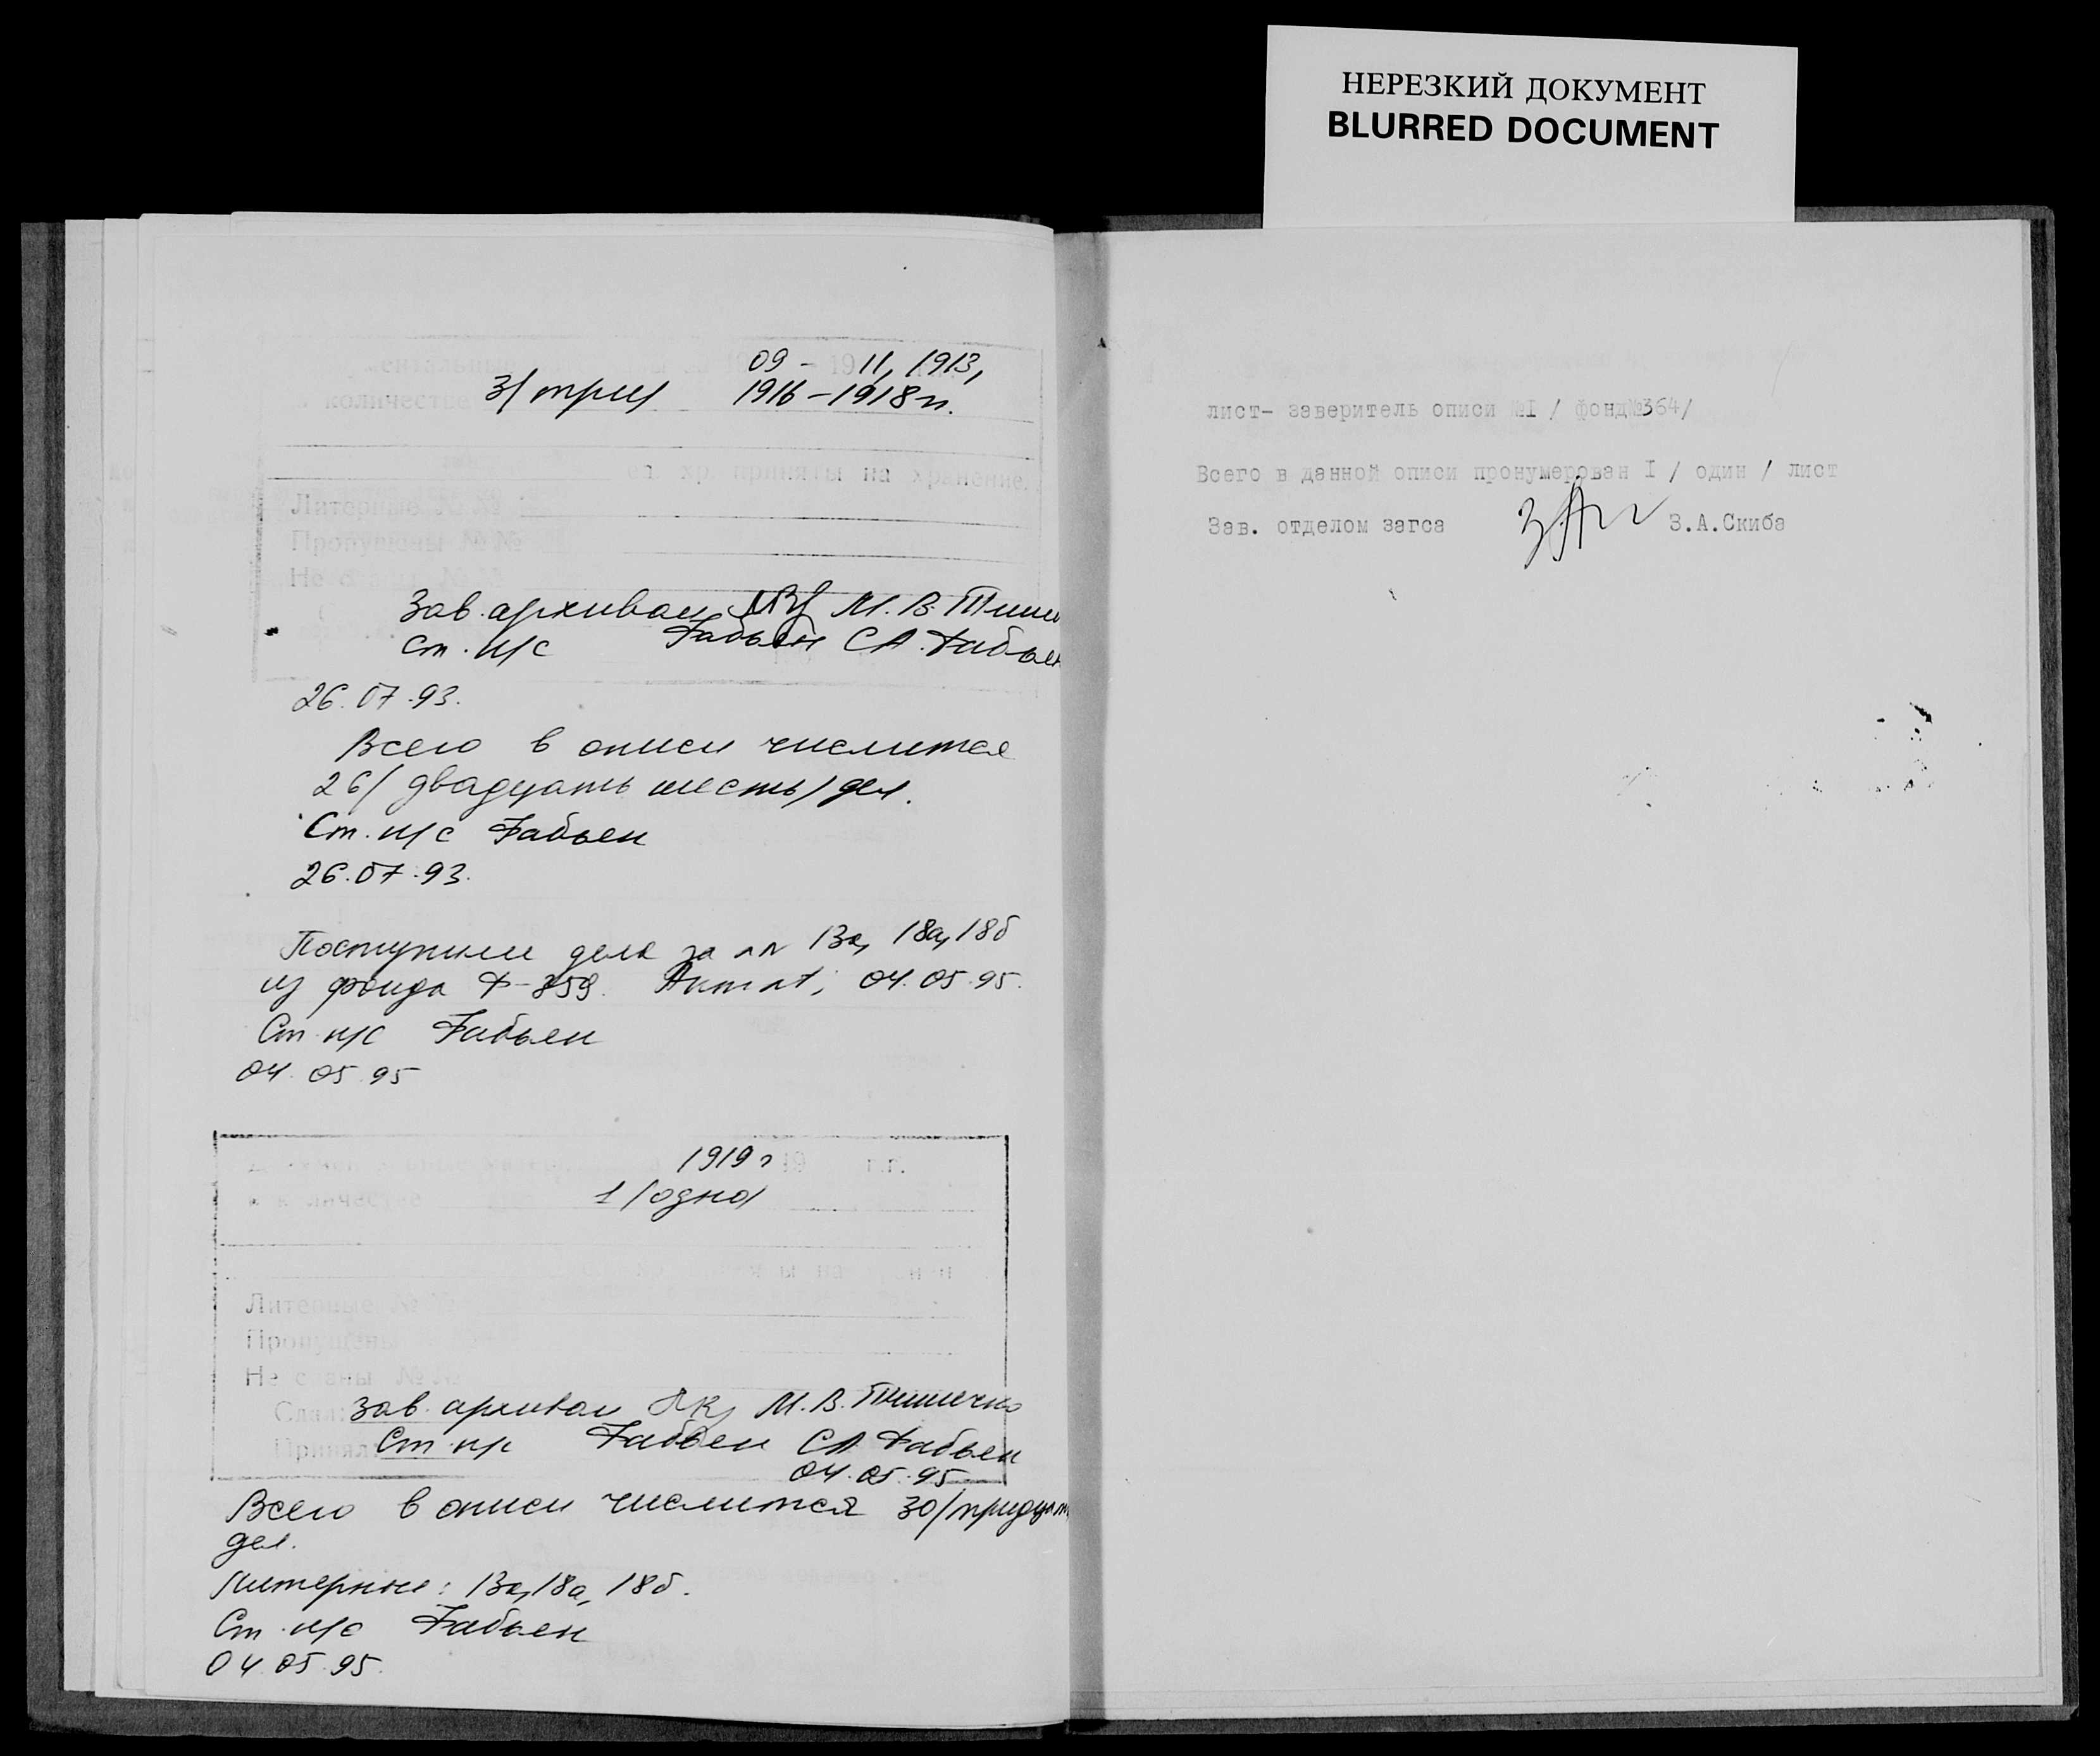 НЕРЕЗКИЙ ДОКУМЕНТ
BLURRED DOCUMENT
09 – 1911, 1913,
количестве 3/три/ 1916–1918 гг.
ед. хр. приняты на хранение.
Литерные №№
Пропущены №№
Не сданы №№
Зав. архивом М.В.
Ст. н/с Фабьен С.А. Фабьен
26.07.93.
Всего в описи числится
26/двадцать шесть/дел.
Ст. н/с Фабьен
26.07.93.
Поступили дела за №№ 13а, 18а, 18б
из фонда Ф-359. Акт №1, 04.05.95.
Ст. н/с Фабьен
04.05.95
1919 г 19 г.г.
количестве 1/одно/
Литерные №№
Пропущены №№
Не сданы №№
Сдал: Зав. архивом М.В.
Принял: Ст. н/с Фабьен С.А. Фабьен
04.05.95
Всего в описи числится 30/тридцать
дел.
Литерные: 13а, 18а, 18б.
Ст. н/с Фабьен
04.05.95.
лист- заверитель описи №I / фонд№364/
Всего в данной описи пронумерован I / один / лист
Зав. отделом загса З.А.Скиба